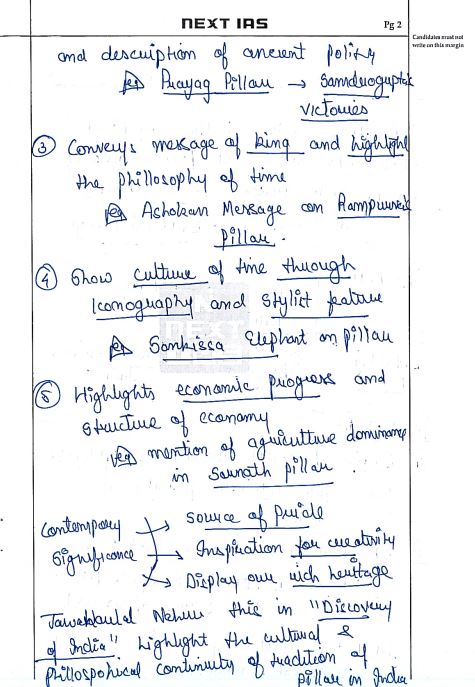 NEXT IAS
Pg 2
Candidates must not
write on this margin
and description of ancient polity
eg Prayag Pillar → Samdragupta
victories
③ Conveys message of king and highlight
the philosophy of time
eg Ashokan Message on Rampurva
Pillar.
④ Show culture of time through
Iconography and stylist feature
eg Sankissa Elephant on pillar
⑤ Highlights economic progress and
structure of economy
eg mention of agriculture dominance
in Sarnath pillar.
Contempory
Significance
→ source of pride
→ Inspiration for creativity
→ Display our rich heritage
Jawaharlal Nehru this in "Discovery
of India" highlight the cultural &
phillospohical continuity of tradition of
pillar in India